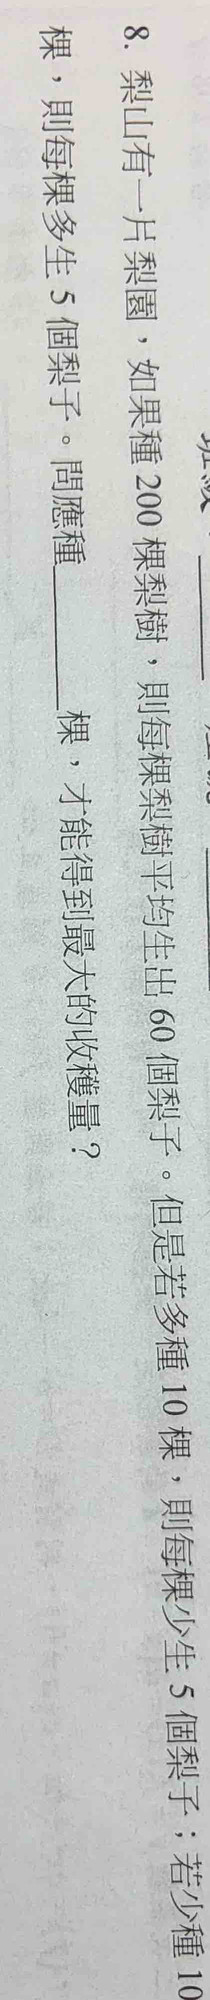 8. 梨山有一片梨園，如果種 200 棵梨樹，則每棵梨樹平均生出 60 個梨子。但是若多種 10 棵，則每棵少生 5 個梨子；若少種 10
棵，則每棵多生 5 個梨子。問應種________棵，才能得到最大的收穫量？